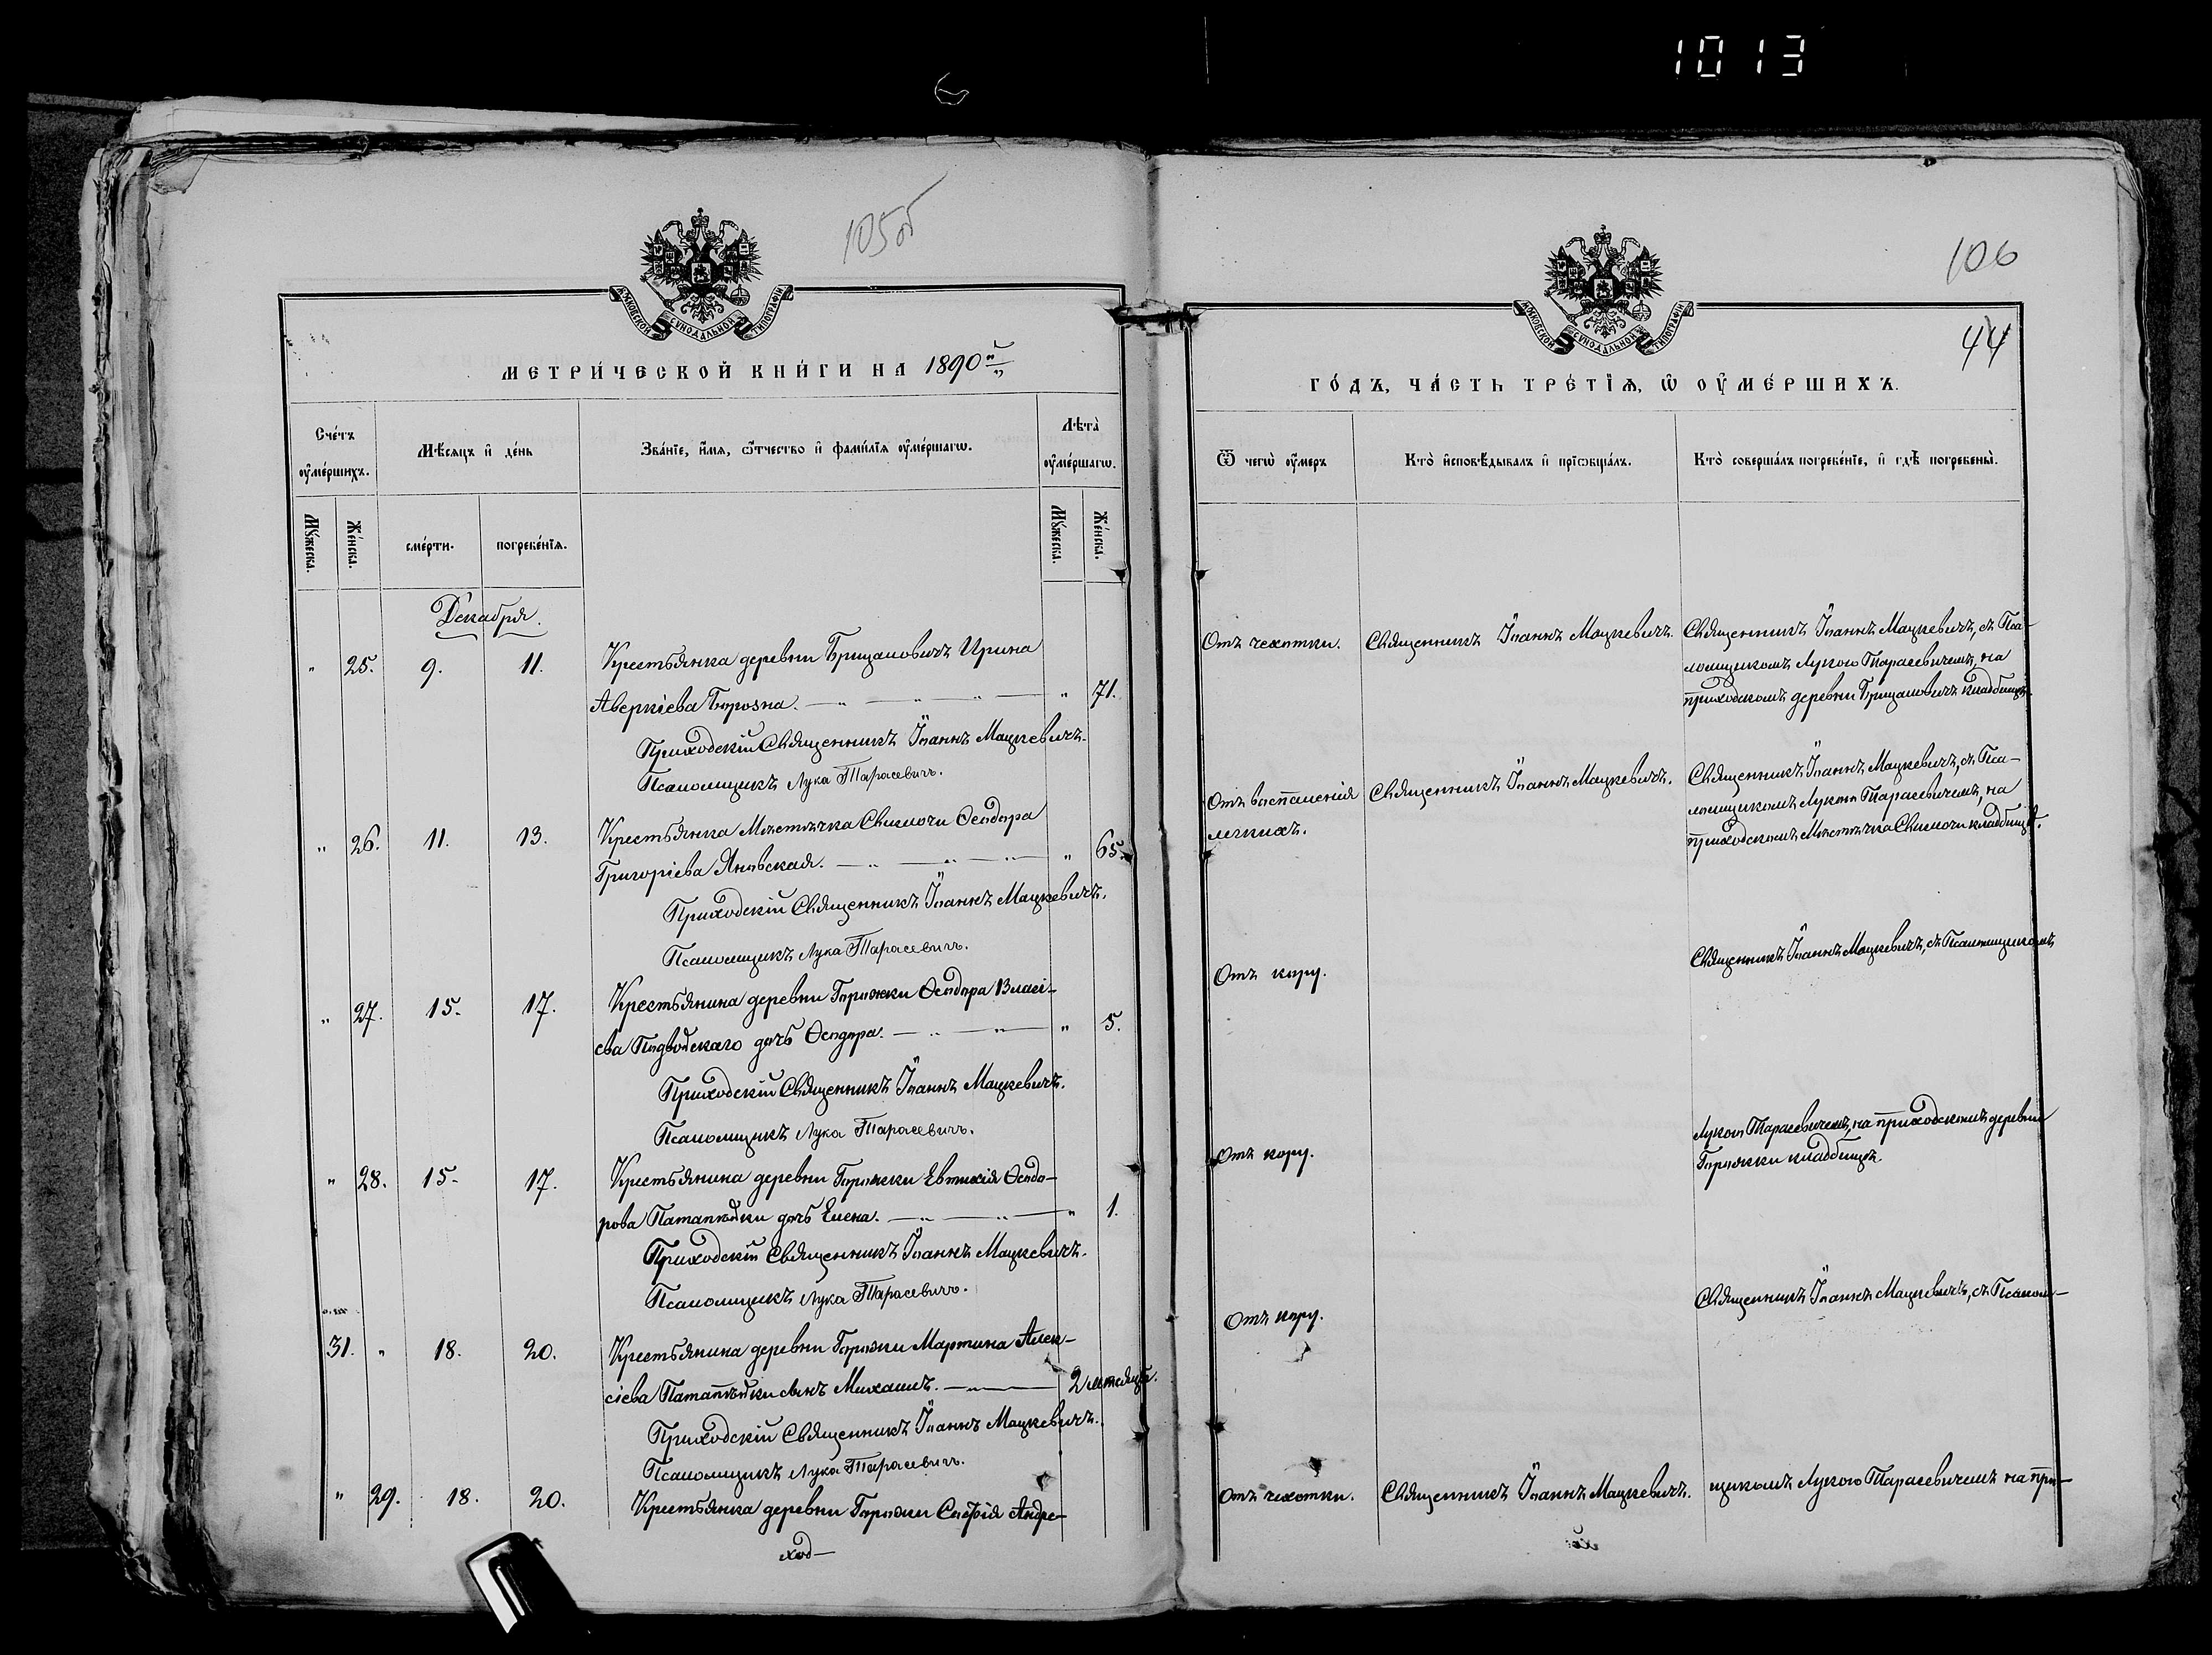 1013
105об
106
МОСКОВСКОЙ СѴНОДАЛЬНОЙ ТИПОГРАФІИ
МЕТРИ́ЧЕСКОЙ КНИ́ГИ НА 1890й
Сче́тъ ᲂу҆ме́ршихъ.
Мꙋ́жеска.
Же́нска.
Мѣ́сяцъ и҆ де́нь
сме́рти.
погребе́нїѧ.
Зва́нїе, и҆́мѧ, ѻ҆́тчество и҆ фами́лїѧ ᲂу҆ме́ршагѡ.
Лѣ́та ᲂу҆ме́ршагѡ.
Мꙋ́жеска.
Же́нска.
Декабря.
" 25. 9. 11. Крестьянка деревни Брицаловичъ Ирина
Аверкіева Борозна. " 71.
Приходскій Священникъ Іоаннъ Мацкевичъ.
Псаломщикъ Лука Тарасевичъ.
" 26. 11. 13. Крестьянка Мѣстечка Свислочи Ѳеодора
Григоріева Яновская. " 65.
Приходскій Священникъ Іоаннъ Мацкевичъ.
Псаломщикъ Лука Тарасевичъ.
" 27. 15. 17. Крестьянина деревни Горожки Ѳеодора Власі-
ева Подвойскаго дочь Ѳеодора. " 5.
Приходскій Священникъ Іоаннъ Мацкевичъ.
Псаломщикъ Лука Тарасевичъ.
" 28. 15. 17. Крестьянина деревни Горожки Евтихія Ѳеодо-
рова дочь Елена. " 1.
Приходскій Священникъ Іоаннъ Мацкевичъ.
Псаломщикъ Лука Тарасевичъ.
31. " 18. 20. Крестьянина деревни Горожки Мартина Алек-
сіева сынъ Михаилъ. 2 мѣсяца.
Приходскій Священникъ Іоаннъ Мацкевичъ.
Псаломщикъ Лука Тарасевичъ.
" 29. 18. 20. Крестьянка деревни Горожки Софія Андре-
ход-
МОСКОВСКОЙ СѴНОДАЛЬНОЙ ТИПОГРАФІИ
44
ГО́ДЪ, ЧА́СТЬ ТРЕ́ТЇѦ, Ѡ҆ ОУ҆МЕ́РШИХЪ.
Ѿ чегѡ̀ ᲂу҆́меръ
Кто̀ и҆сповѣ́дывалъ и҆ прїѡбща́лъ.
Кто̀ соверша́лъ погребе́нїе, и҆ гдѣ̀ погребены̀.
Отъ чахотки. Священникъ Іоаннъ Мацкевичъ. Священникъ Іоаннъ Мацкевичъ, съ Пса-
ломщикомъ Лукою Тарасевичемъ, на
приходскомъ деревни Брицаловичъ кладбищѣ.
Отъ воспаленія Священникъ Іоаннъ Мацкевичъ. Священникъ Іоаннъ Мацкевичъ, съ Пса-
легкихъ. ломщикомъ Лукою Тарасевичемъ, на
приходскомъ Мѣстечка Свислочи кладбищѣ.
Священникъ Іоаннъ Мацкевичъ, съ Псаломщикомъ
Отъ кору.
Лукою Тарасевичемъ, на приходскомъ деревни
Отъ кору. Горожки кладбищѣ.
Священникъ Іоаннъ Мацкевичъ, съ Псалом-
Отъ кору.
Отъ чахотки. Священникъ Іоаннъ Мацкевичъ. щикомъ Лукою Тарасевичемъ на при-